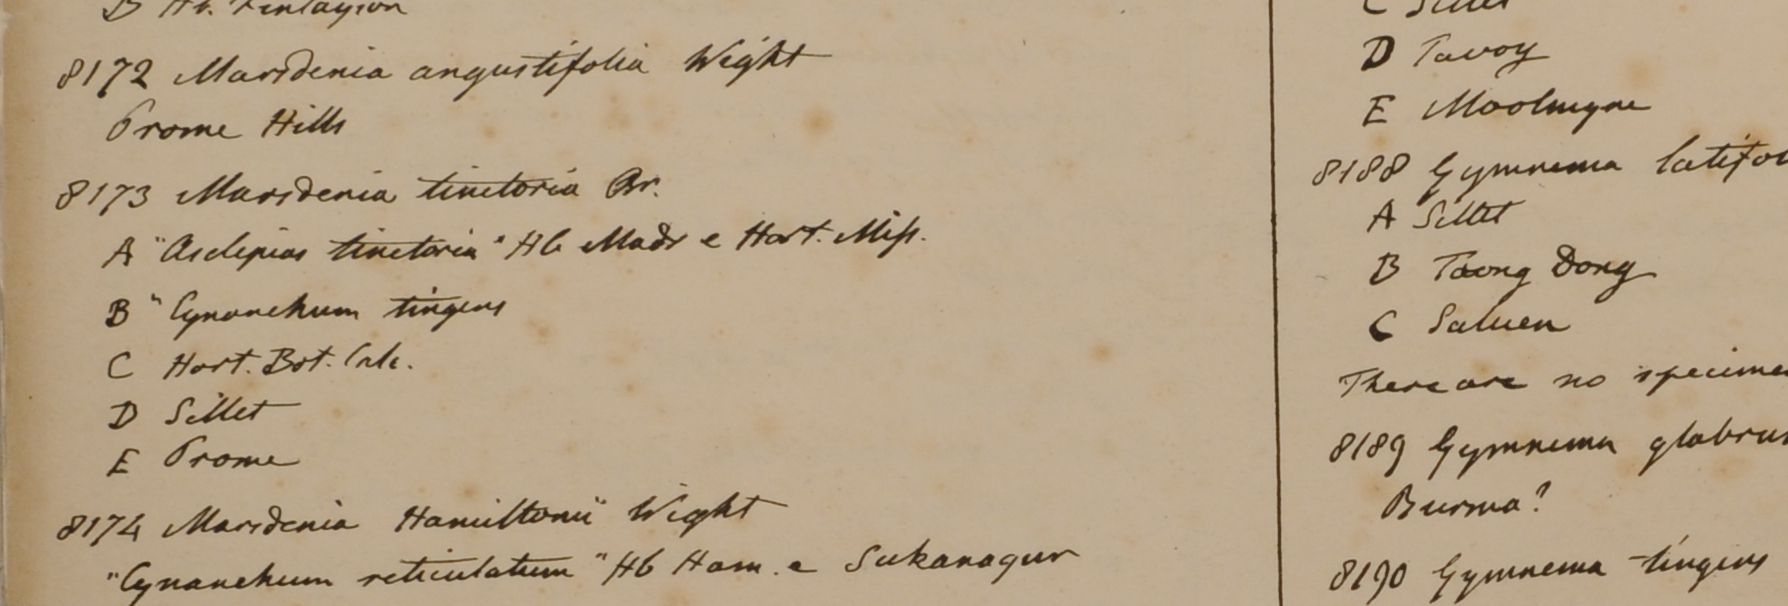 B Hb. Finlayson
8172 Marsdenia angustifolia Wight
Prome Hills
8173 Marsdenia tinctoria Br.
A "Asclepias tinctoria" Hb Madr e Hort. Miss.
B "Cynanchum tingens
C Hort. Bot. Calc.
D Sillet
E Prome
8174 Marsdenia Hamiltonii Wight
"Cynanchum reticulatum" Hb Ham. e Sukanagur
C Sillet
D Tavoy
E Moolmyne
8188 Gymnema latifol
A Sillet
B Taong Dong
C Saluen
There are no specime
8189 Gymnema glabru
Burma?
8190 Gymnema tingens